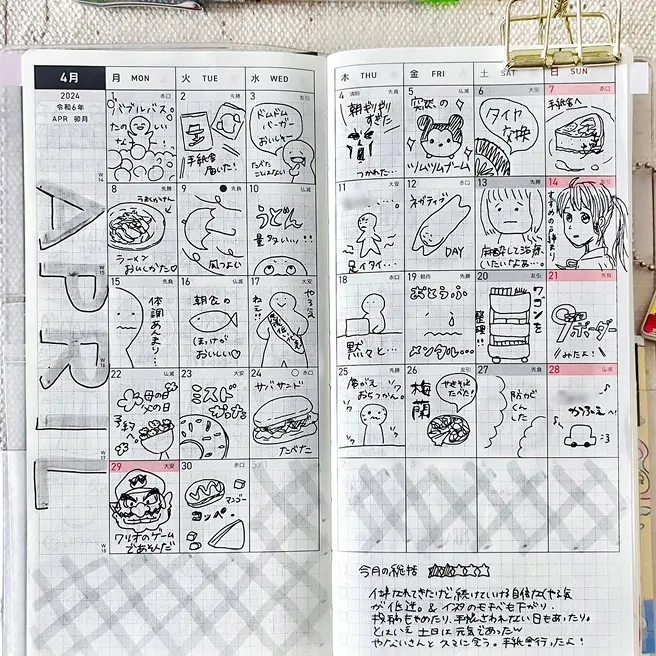 4月
月 MON
火 TUE
水 WED
木 THU
金 FRI
土 SAT
日 SUN
2024
令和6年
APR 卯月
APRIL
1 赤口
バブルバス。
たのしい
なぁ!!
2 先勝
手紙舎
届いた!
3 友引
ドムドム
バーガー
おいしかー
たべた
ことはない
4 先負
朝ギリギリ
すぎた
つかれた…
5 仏滅
突然の
ツムツムブーム
6 大安
タイヤ
交換
7 赤口
手紙舎へ
W14
8 先勝
ラーメン
おいしかった♡
9 先負
風つよい
10 仏滅
うどん
量多い!!
11 大安
足イタイ…
12 赤口
ネガティブ
DAY
13 先勝
麻酔して治療
いたいなぁ…。
14 友引
すずめの戸締まり
W15
15 先負
体調あんまり…
16 仏滅
朝食の
ほっけが
おいしい♡
17 大安
やる気
ねぇ!!
18 赤口
黙々と…
19 穀雨
おとうふ
メンタル…
20 友引
ワゴンを
整理!!
21 先負
9ボーダー
みたよ!
W16
22 仏滅
母の日
父の日
予約
23 大安
ミスド
だった
24 赤口
サバサンド
たべた
25 先勝
着がえ
おちつかん。
26 友引
梅蘭
やきそば
たべた!
27 先負
防カビ
くん
した
28 仏滅
かふぇへ
W17
29 大安
ワリオのゲーム
であそんだ
30 赤口
マンゴー
コッペ
W18
今月の総括
仕事なれてきたけど続けていける自信なくやる気
が低迷。& イヌタのモチベも下がり、
投稿もやめたり、手帳さわれない日もあったり。
とはいえ土日は元気であったw
やなぎさんと久々に会う。手紙舎行ったよ!